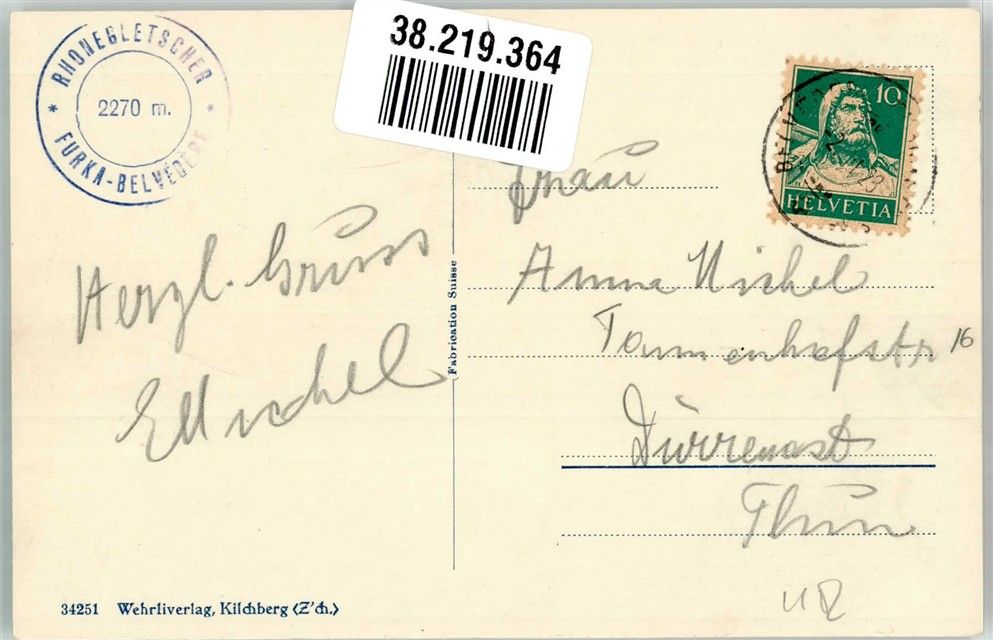 RHONEGLETSCHER
2270 m.
* FURKA-BELVEDERE *
38.219.364
10
HELVETIA
Frau
Anna Michel
Tannenhofstr 16
Dürrenast
Thun
Herzl. Gruss
E Michel
Fabrication Suisse
34251 Wehrliverlag, Kilchberg (Z'ch.)